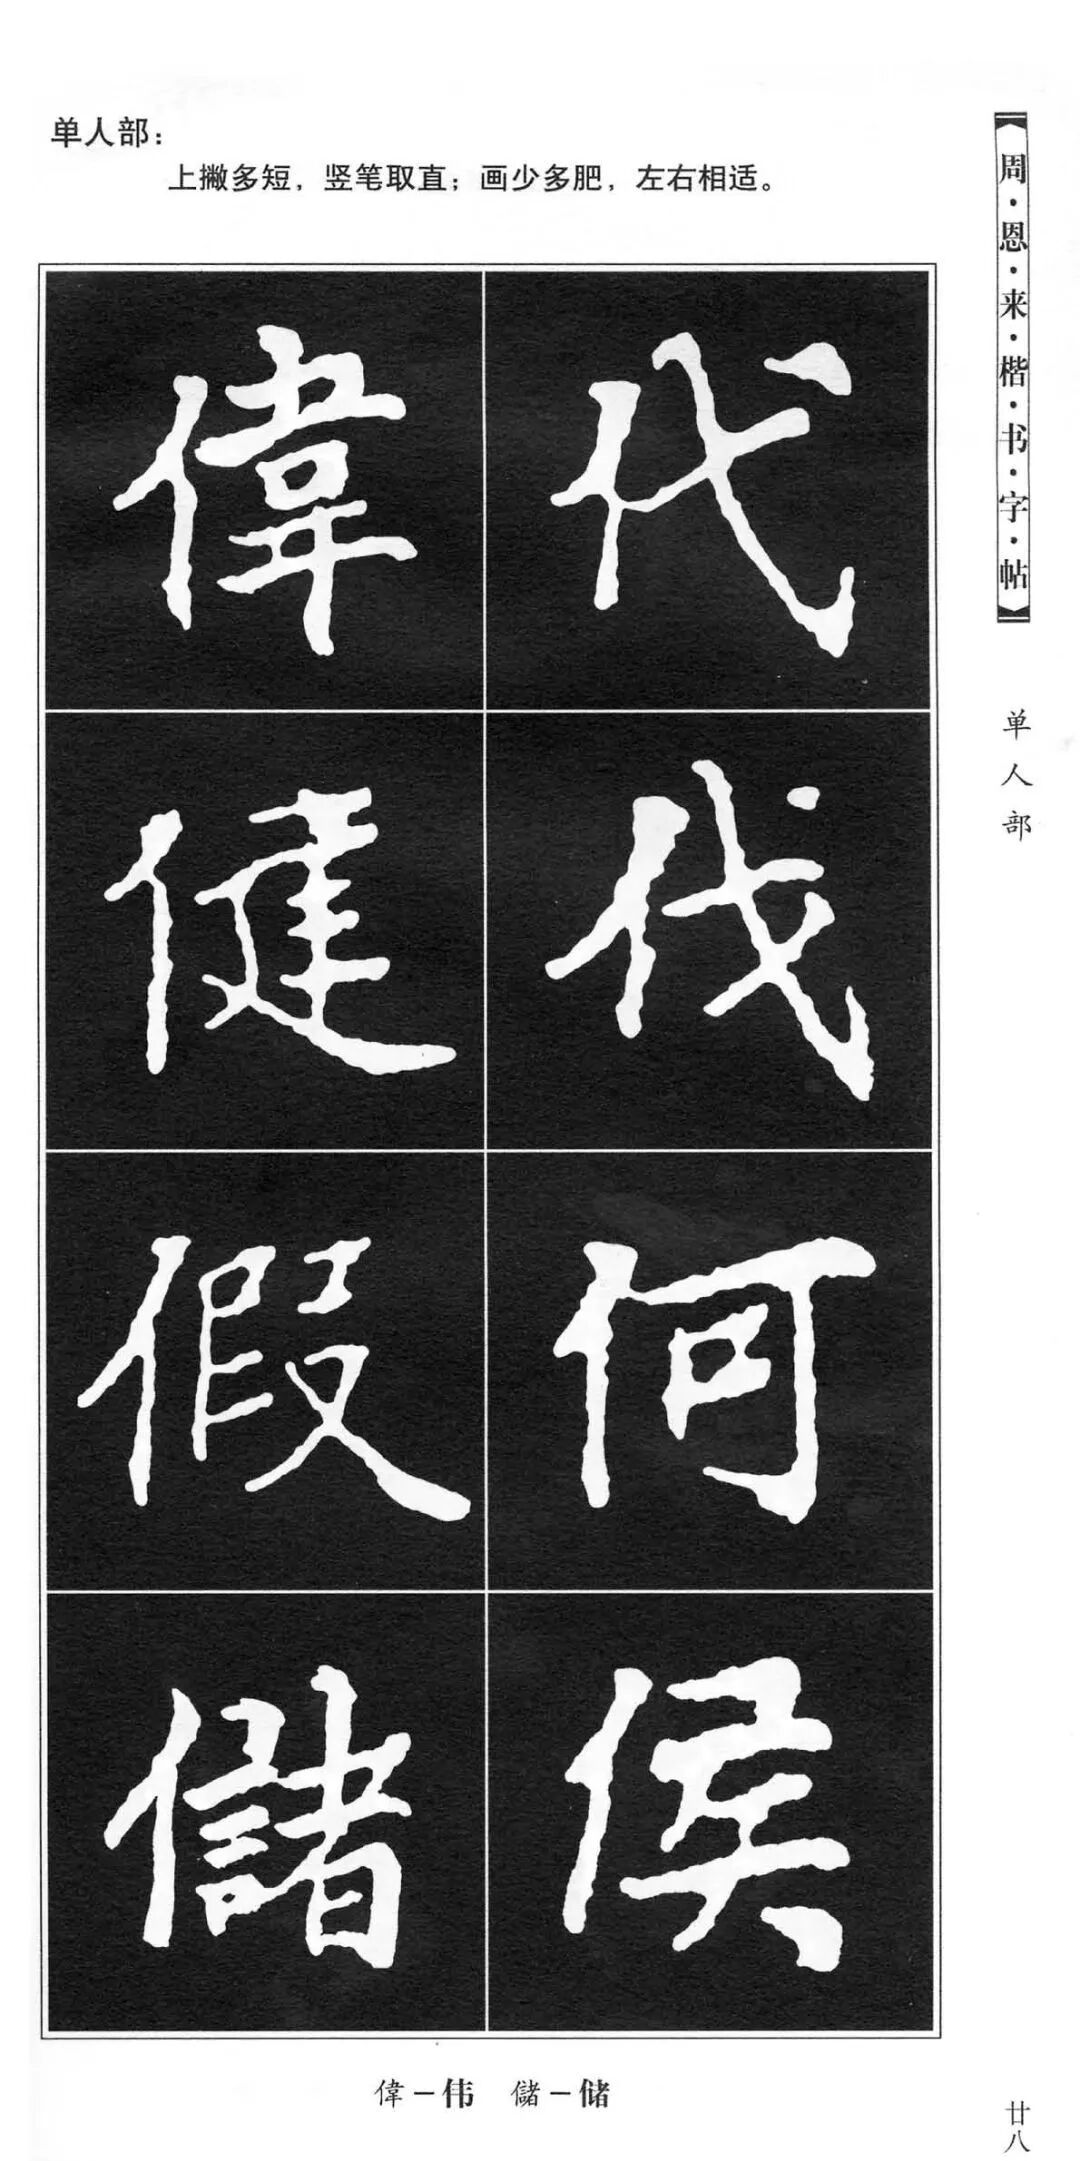 单人部：
上撇多短，竖笔取直；画少多肥，左右相适。
周·恩·来·楷·书·字·帖
单人部
代伐何侯
偉健假儲
偉－伟 儲－储
廿八